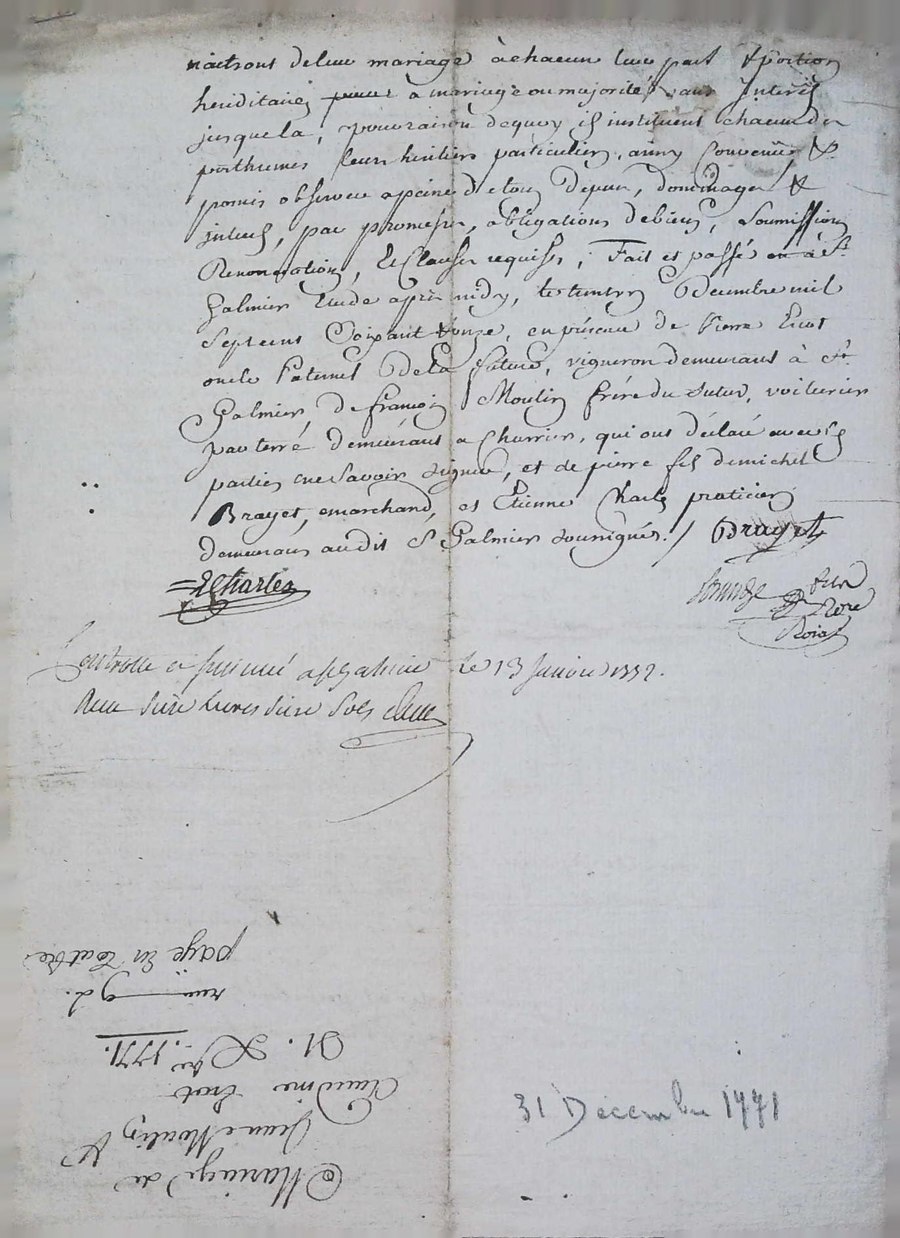 naitrons de leur mariage à chacun leur part & portion
hereditaires a mariage ou majorité, sans Interets
jusques la, pour raison dequoy ils instituent chacun des
posthumes leurs heritiers particuliers, ainsy Convenu &
promis observer a peine de tous Depens, dommages &
interets, par promesses, obligations de biens, Soumissions
Renonciations, & Clauses requises, Fait et passé à St
Galmier Etude après midy, le trente un Decembre mil
Sept cens Soixante & onze, en présence de Pierre
oncle Paternel De la future, vigneron demeurant à St
Galmier, de françois Moulin frère du futur, voiturier
par terre demeurant a Charrier, qui ont déclaré avec les
parties ne Savoir Signer, et de pierre fils de michel
Brayet, marchand, et Etienne Charles praticien
demeurans audit St Galmier soussignés. / Brayet
=E Charles
Nore
Roial
Controllé et insinué a St Galmier le 13 Janvier 1772.
Reçu livres Sols
Mariage de
Jean Moulin &
Claudine
31. Xbre. 1771.
9 d.
payé En
31 Décembre 1771